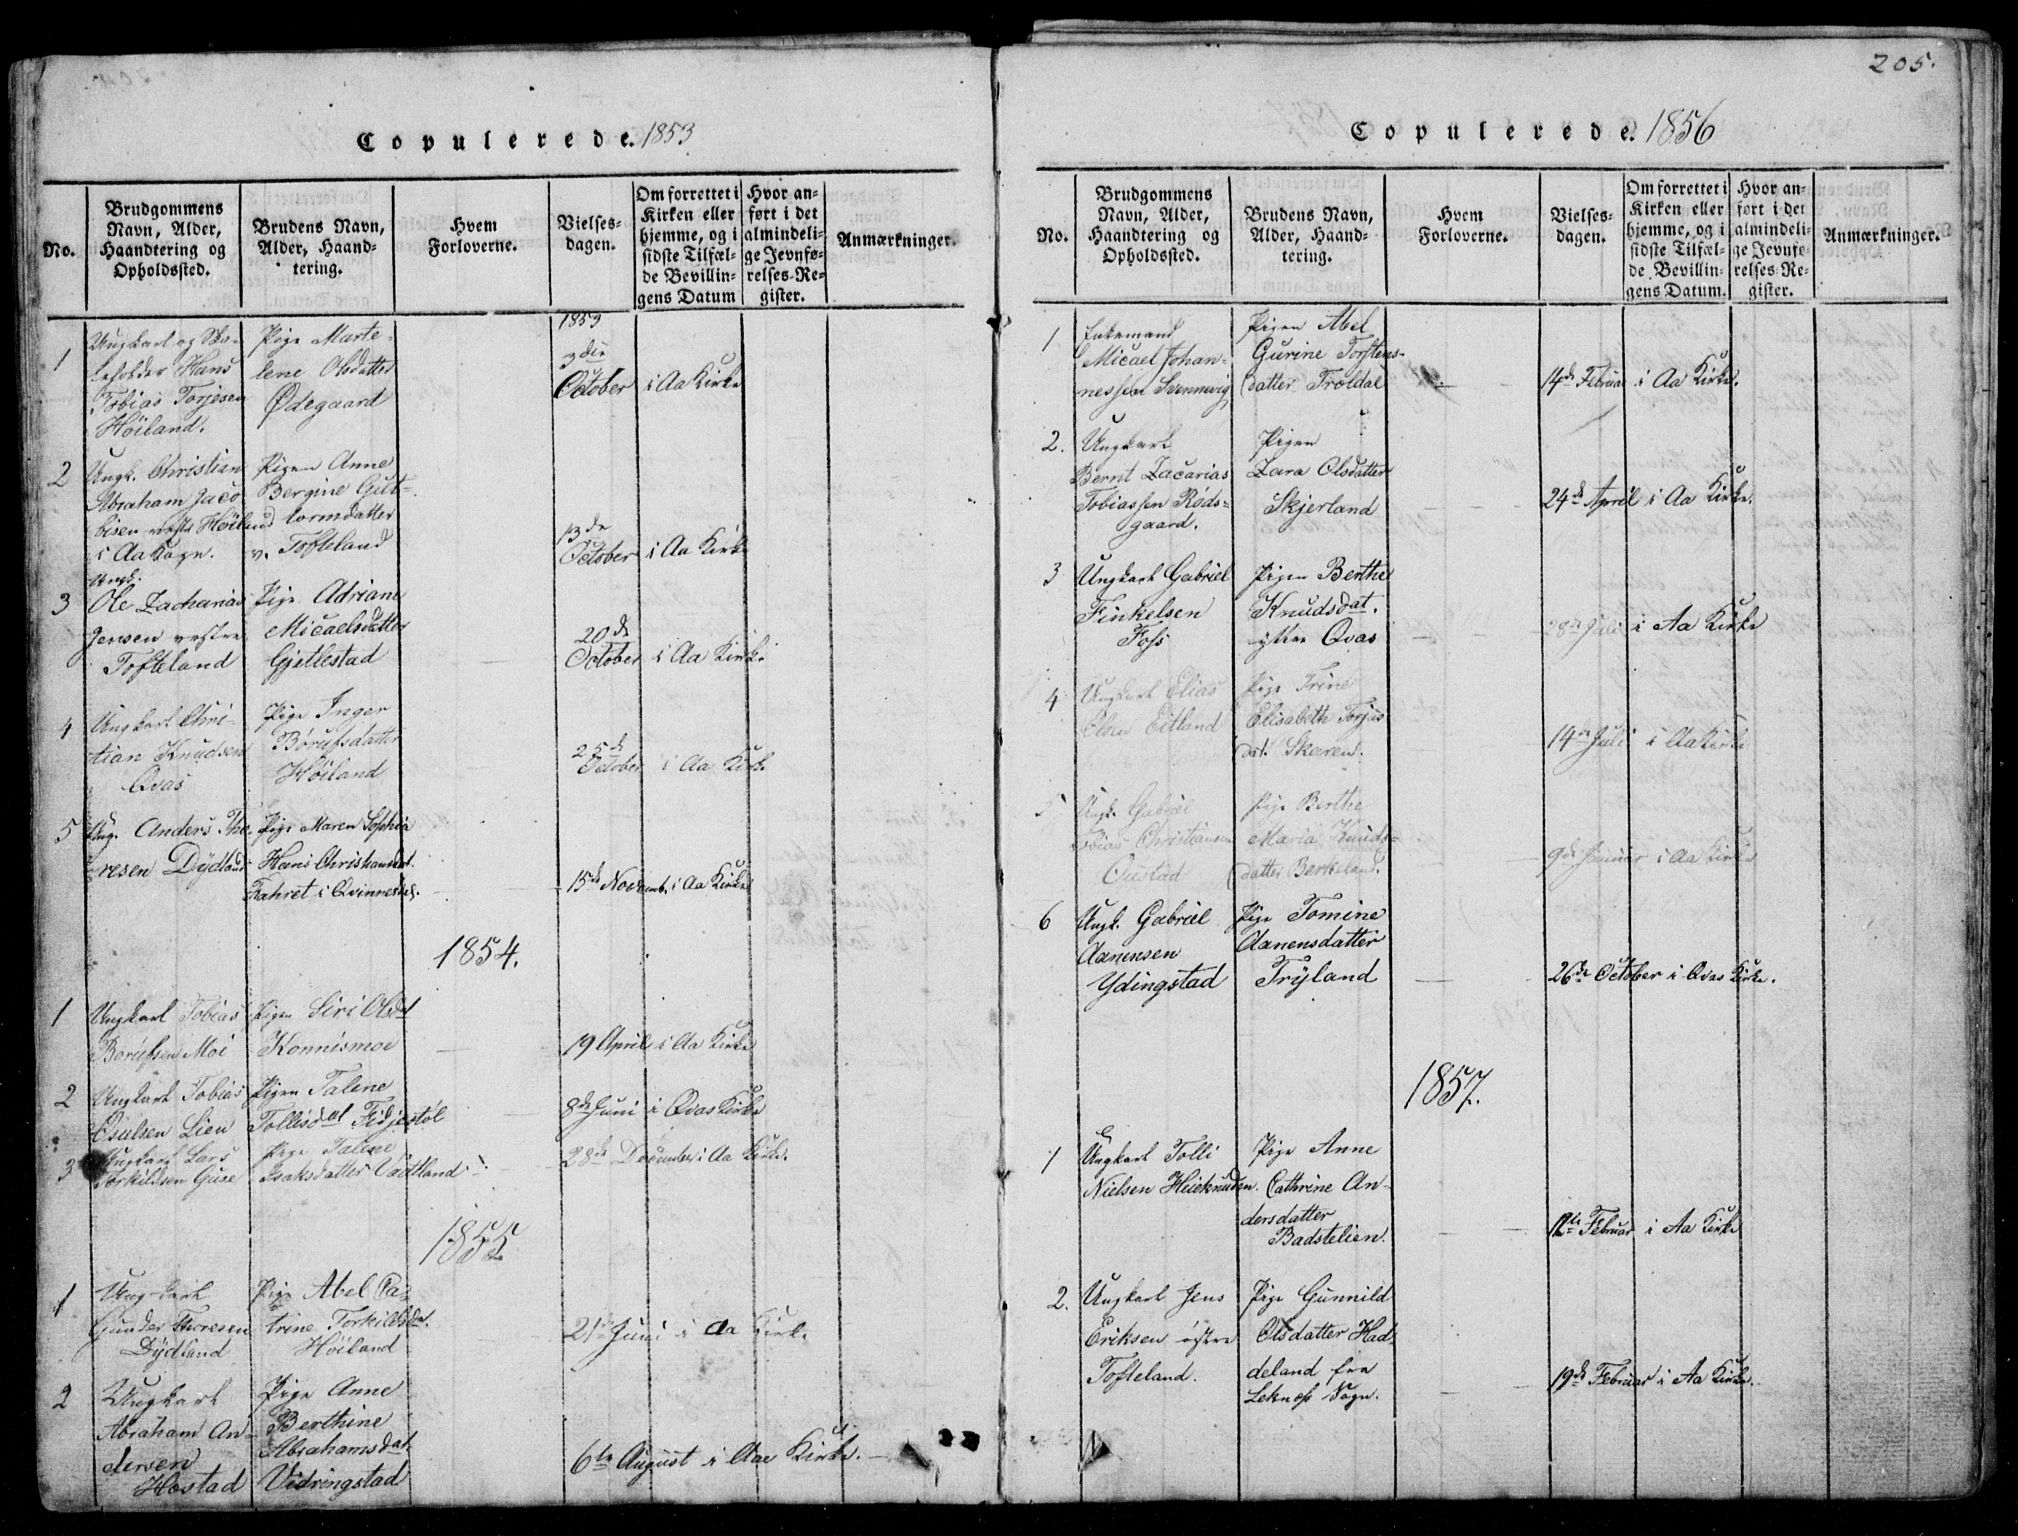 Copulerede. 1853
No.
Brudgommens Navn, Alder, Haandtering og Opholdssted.
Brudens Navn, Alder, Haandtering.
Hvem Forloverne.
Vielsesdagen.
Om forrettet i Kirken eller hjemme, og i sidste Tilfælde Bevillingens Datum
Hvor anført i det almindelige Jevnførelses-Register.
Anmærkninger.
1
Ungkarl og
Hans
Tobias Torjesen
Höiland.
Pige Marte-
lene Olsdatter
Ødegaard
1853
3die
October i Aa Kirke
2
Ungk. Christian
Abraham Jaco
bisen vestr Höiland
i Aa Sogn.
Pigen Anne
Bergine Gut-
tormdatter
v. Tofteland
13de
October i Aa Kirke
3
Ungk.
Ole Zacharias
Jensen vestre
Tofteland
Pige Adriane
Micaelsdatter
Gjetlestad
20de
October i Aa Kirke
4
Ungkarl Chri-
tian Knudsen
Qvas
Pige Inger
Börufsdatter
Höiland
25de
October i Aa Kirke
5
Ung. Anders Tho-
resen Dydland
Pige Maren Sophia
Hans Christiansdat.
Fahret i Qvinnesh.
15de Novemb. i Aa Kirke
1854.
1
Ungkarl Tobias
Börufsen Moi
Pigen Siri Olsdt
Konnismoe
19 April i Aa Kirke
2
Ungkarl Tobias
Osulsen Lien
Pigen Talene
Tollisdat Fidjestöl
8de Juni i Qvas Kirke
3
Ungkarl Lars
Torkildsen Guse
Pige Talene
Isaksdatter
28de December i Aa Kirke.
1855
1
Ungkarl
Gunder Thoresen
Dydland
Pige Abel Ca-
trine Torkildsdt.
Höiland
21de Juni i Aa Kirke
2
Ungkarl
Abraham An-
dersen
Hostad
Pige Anne
Berthine
Abrahamsdat
Vidringstad
6te August i Aae Kirke.
205.
Copulerede. 1856
No.
Brudgommens Navn, Alder, Haandtering og Opholdssted.
Brudens Navn, Alder, Haandtering.
Hvem Forloverne.
Vielsesdagen.
Om forrettet i Kirken eller hjemme, og i sidste Tilfælde Bevillingens Datum.
Hvor anført i det almindelige Jevnførelses-Register.
Anmærkninger.
1
Enkemand
Micael Johan-
nessen Svennevig
Pigen Abel
Gurine Torstens-
datter Troldal
14de Februar i Aa Kirke.
2.
Ungkarl
Bernt Zacarias
Tobiassen Röds-
gaard.
Pigen
Zara Olsdatter
Skjerland
24de April i Aa Kirke.
3
Ungkarl Gabriel
Finkelsen
Foss
Pigen Berthe
Knudsdat.
yttre Qvas
28de Juli i Aa Kirke
4
Ungkarl Elias
Olsen Eitland
Pige Trine
Elisabeth Torjus
dat. Skeren.
14de Juli i Aa Kirke
5
Ungk. Gabriel
Tobias Christiansen
Oustad
Pige Berthe
Maria Knuds-
datter Berkeland.
9de Januar i Aa Kirke
6
Ungk. Gabriel
Aanensen
Ydingstad
Pige Tomine
Aanensdatter
Tryland
26de October i Qvas Kirke.
1857.
1
Ungkarl Tolli
Nielsen Heieknuden.
Pige Anne
Cathrine An-
dersdatter
Badstelien.
12te Februar i Aa Kirke
2.
Ungkarl Jens
Eriksen östre
Tofteland.
Pige Gunnild
Olsdatter Had-
deland fra
Leknes Sogn.
19de Februar i Aa Kirke.